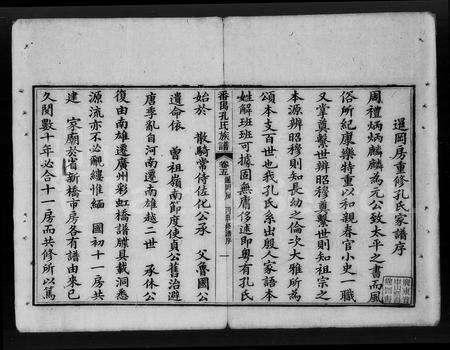 暹岡房重修孔氏家譜序
周禮炳炳麟麟為元公致太平之書而風
俗所紀康樂特重以和親春官小史一職
又掌奠繫世辨昭穆奠繫世則知祖宗之
本源辨昭穆則知長幼之倫次大雅所為
頌本支百世也我孔氏系出殷人家語本
姓解班班可據固無庸侈述即粵有孔氏
番禺孔氏族譜
卷五
序
一
始於 散騎常侍佐化公承 父魯國公
遺命依 曾祖嶺南節度使貞公舊治避
唐季亂自河南遷南雄越二世 承休公
復由南雄遷廣州彩虹橋譜牒具載洞悉
源流亦不必覼縷惟緬 國初十一房共
建 家廟於省新橋市房各有譜由來已
久閱數十年必合十一房而共修所以篤
廣東省
中山圖書館